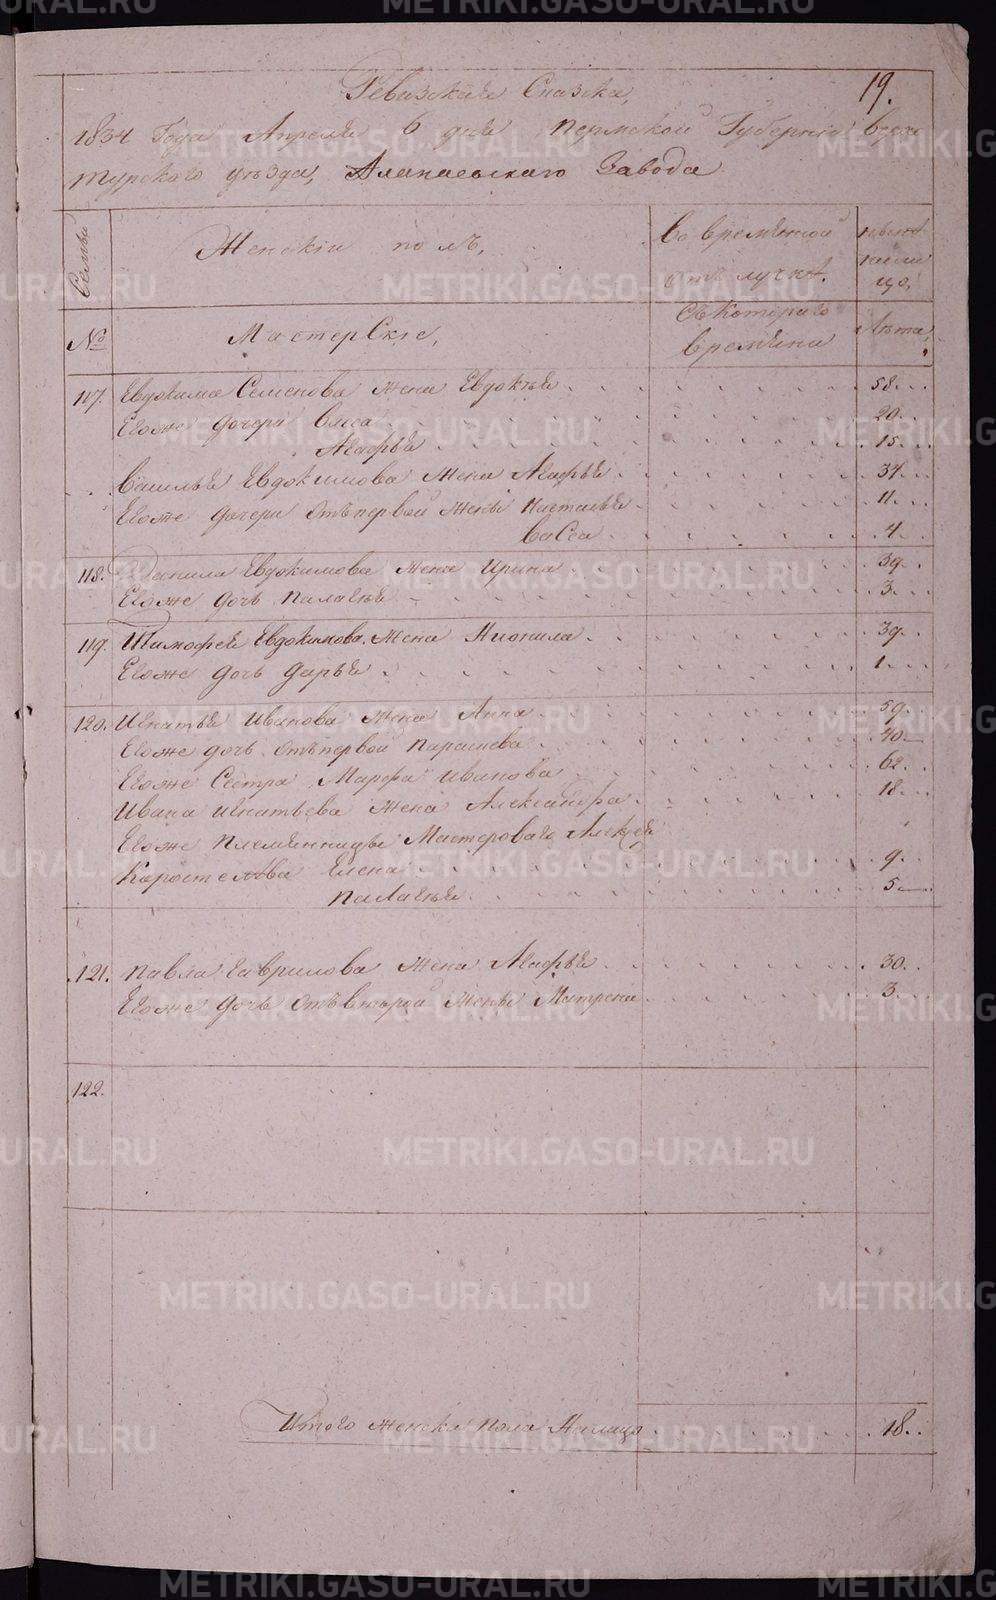 19.
Ревизская Сказка,
1834 Года Апреля 6 дня Пермской Губернiи Верхо
турского уезда, Алапаевскаго Завода
Семьи
Женскiй полъ,
Во временной
отлучке.
ныне
на ли
цо,
№
Мастерскiе,
Съ Котораго
времяни
Лета,
117. Евдокима Семенова жена Евдокея 58.
Егоже дочери Васса 20.
Агафья 15.
Василья Евдокимова жена Агафья 34.
Егоже дочери отъ первой жены Настасья 11.
Васса 4.
118. Данила Евдокимова жена Ирина 39.
Егоже дочь Палагея 3.
119. Тимофея Евдокимова жена Нионила 39.
Егоже дочь Дарья 1.
120. Игнатья Иванова жена Анна 59.
Егоже дочь отъ первой Парасковья 40.
Егоже Сестра Марфа Иванова 62.
Ивана Игнатьева жена Александра 18.
Егоже Племянницы Мастероваго Алексея
Коростелёва Елена 9.
Палагея 5.
121. Павла Гаврилова жена Агафья 30.
Егоже дочь отъ вторы жены Матрена 3.
122.
Итого женска пола налицо 18.